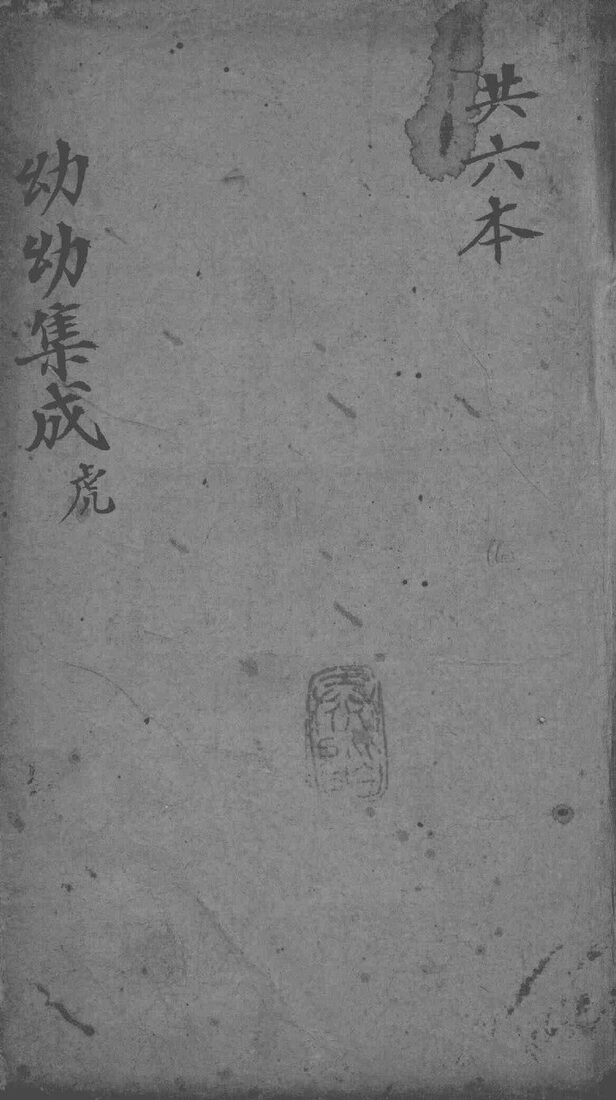 共六本
幼幼集成 虎